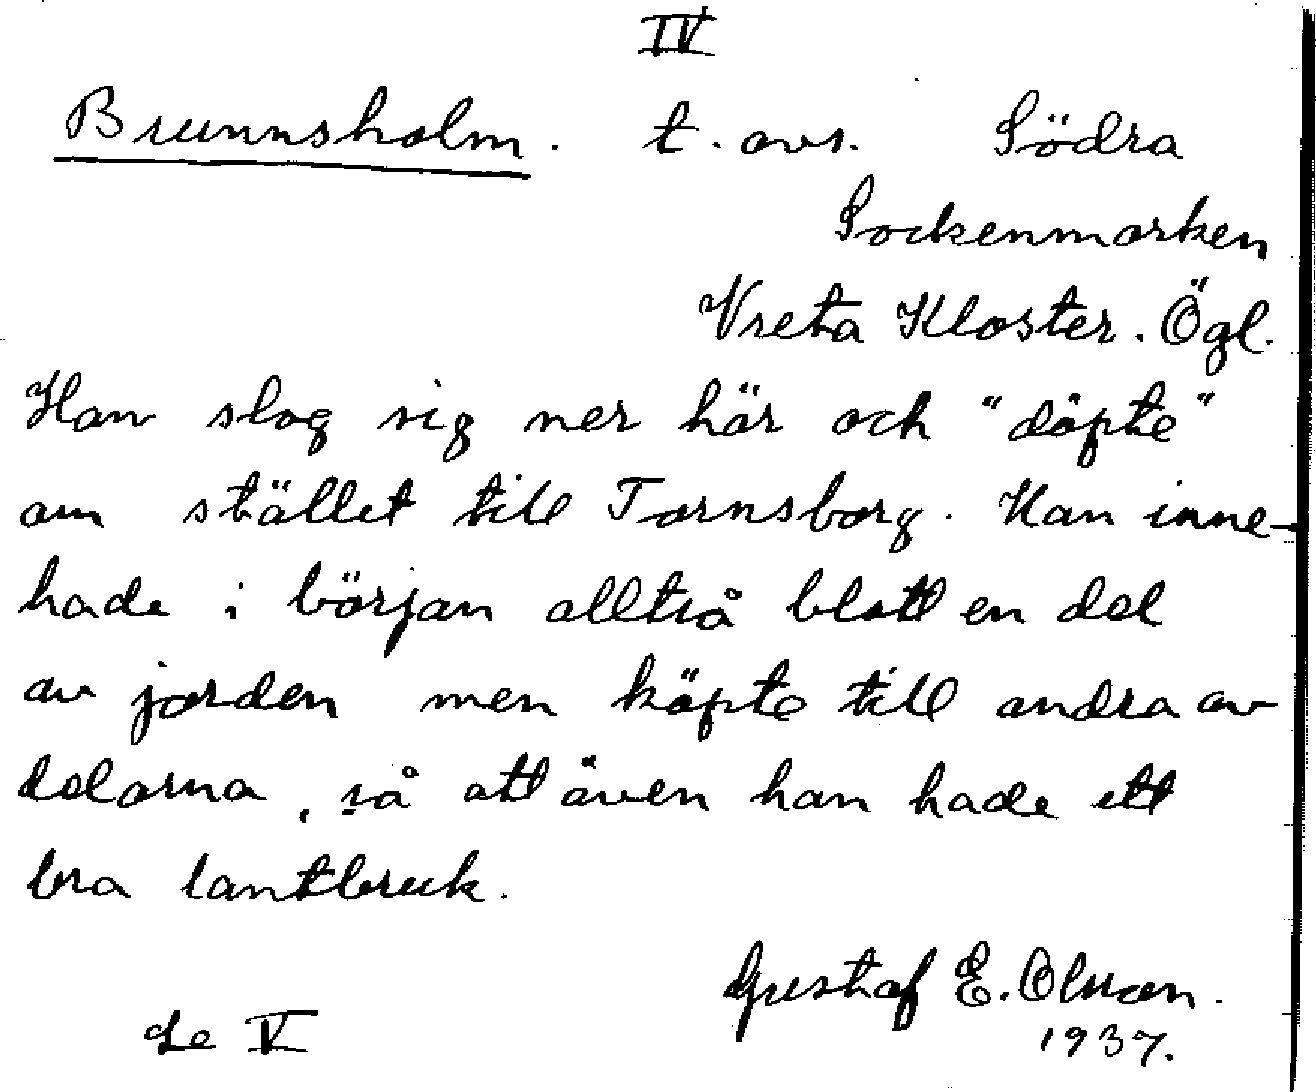 IV
Brunnsholm. t. avs. Södra
Sockenmarken
Vreta Kloster. Ögl.
Han slog sig ner här och "döpte"
om stället till Tornsborg. Han inne-
hade i början alltså blott en del
av jorden men köpte till andra av
delarna, så att även han hade ett
bra lantbruk.
Gustaf E. Olsson.
1937.
se V